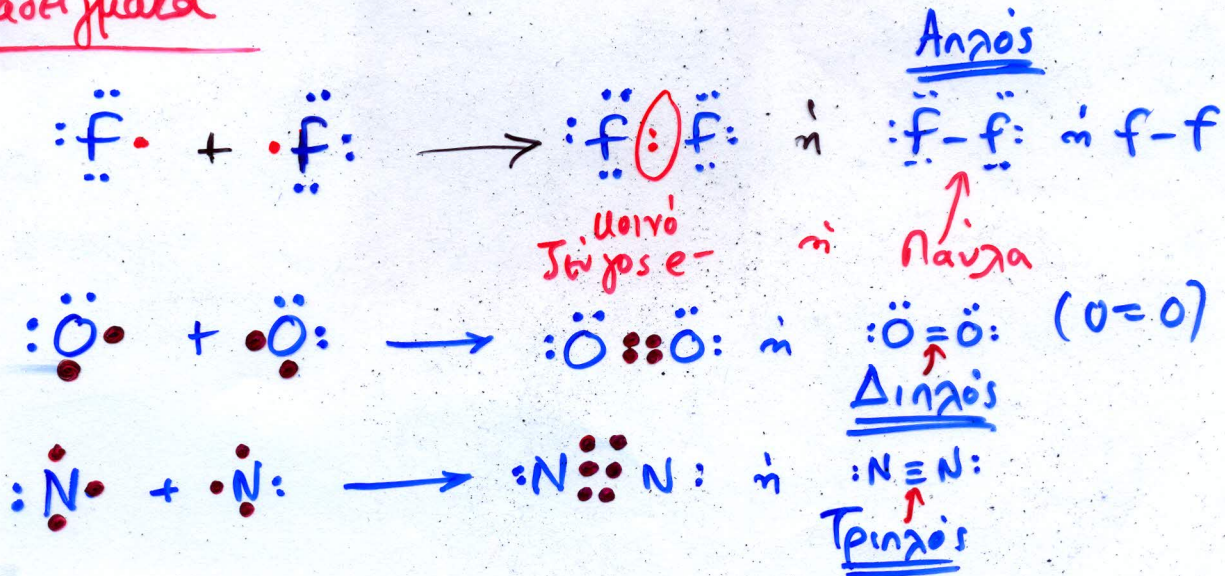 Απλός
:F̈· + ·F̈: → :F̈:F̈: ή :F̈-F̈: ή F-F
κοινό
ζεύγος e- ή Παύλα
:Ö· + ·Ö: → :Ö::Ö: ή :Ö=Ö: (O=O)
Διπλός
:N· + ·N: → :N:::N: ή :N≡N:
Τριπλός